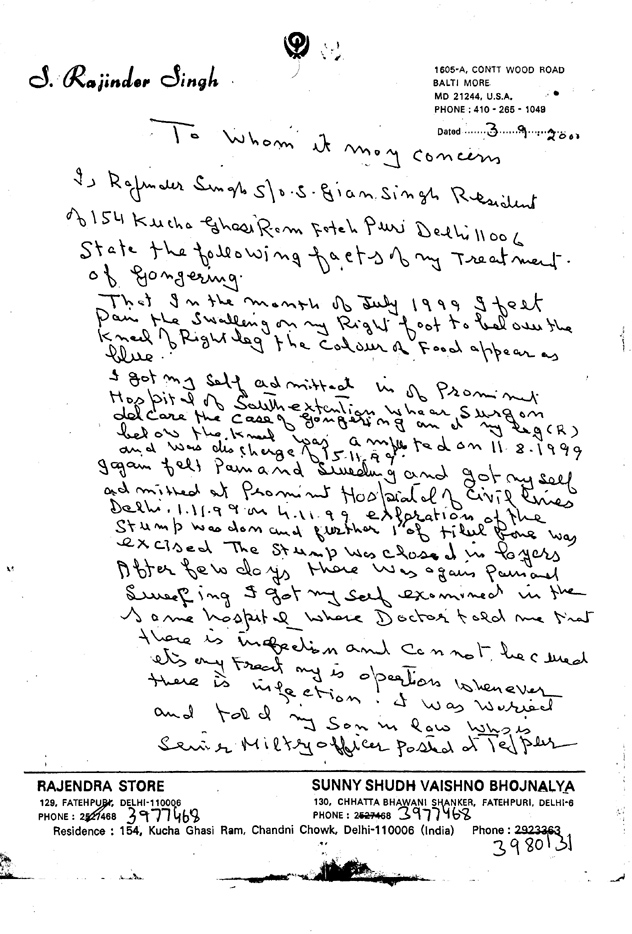 S. Rajinder Singh
1605-A, CONTT WOOD ROAD
BALTI MORE
MD 21244, U.S.A.
PHONE : 410 - 265 - 1049
Dated 3 9 200
To Whom it may concern
I, Rajinder Singh S/o. S. Gian Singh Resident
of 154 Kucha Ghasi Ram Fateh Puri Delhi 11006
State the following facts of my Treatment.
of Gongering.
That In the month of July 1999 I felt
Pain the Swalling on my Right foot to below the
Kneel of Right leg the colour of Food appear as
blue.
I got my self admitted in of Prominut
Hospital of South extention whear Surgon
delcare the case of Gongering an my leg (R)
below the Kneel was amputed on 11.8.1999
and was discharge of 15.11.99.
I again felt Pain and and got my self
admitted at Prominut Hospital of Civil lines
Delhi. 1.11.99 on 4.11.99 exploration of the
Stump was don and further 1" of bone was
excised The Stump was closed in layers
After few days there was again Pain and
I got my self examined in the
Same hospital where Doctor told me that
there is infection and Cannot be cured
only treat is opeation whenever
there is infection. I was Worried
and told my Son in law who is
Senior Miltry officer Posted at Tejpur
RAJENDRA STORE
129, FATEHPURI, DELHI-110006
PHONE : 2527468 3977468
SUNNY SHUDH VAISHNO BHOJNALYA
130, CHHATTA BHAWANI SHANKER, FATEHPURI, DELHI-6
PHONE : 2527468 3977468
Residence : 154, Kucha Ghasi Ram, Chandni Chowk, Delhi-110006 (India) Phone : 2923363
3980131